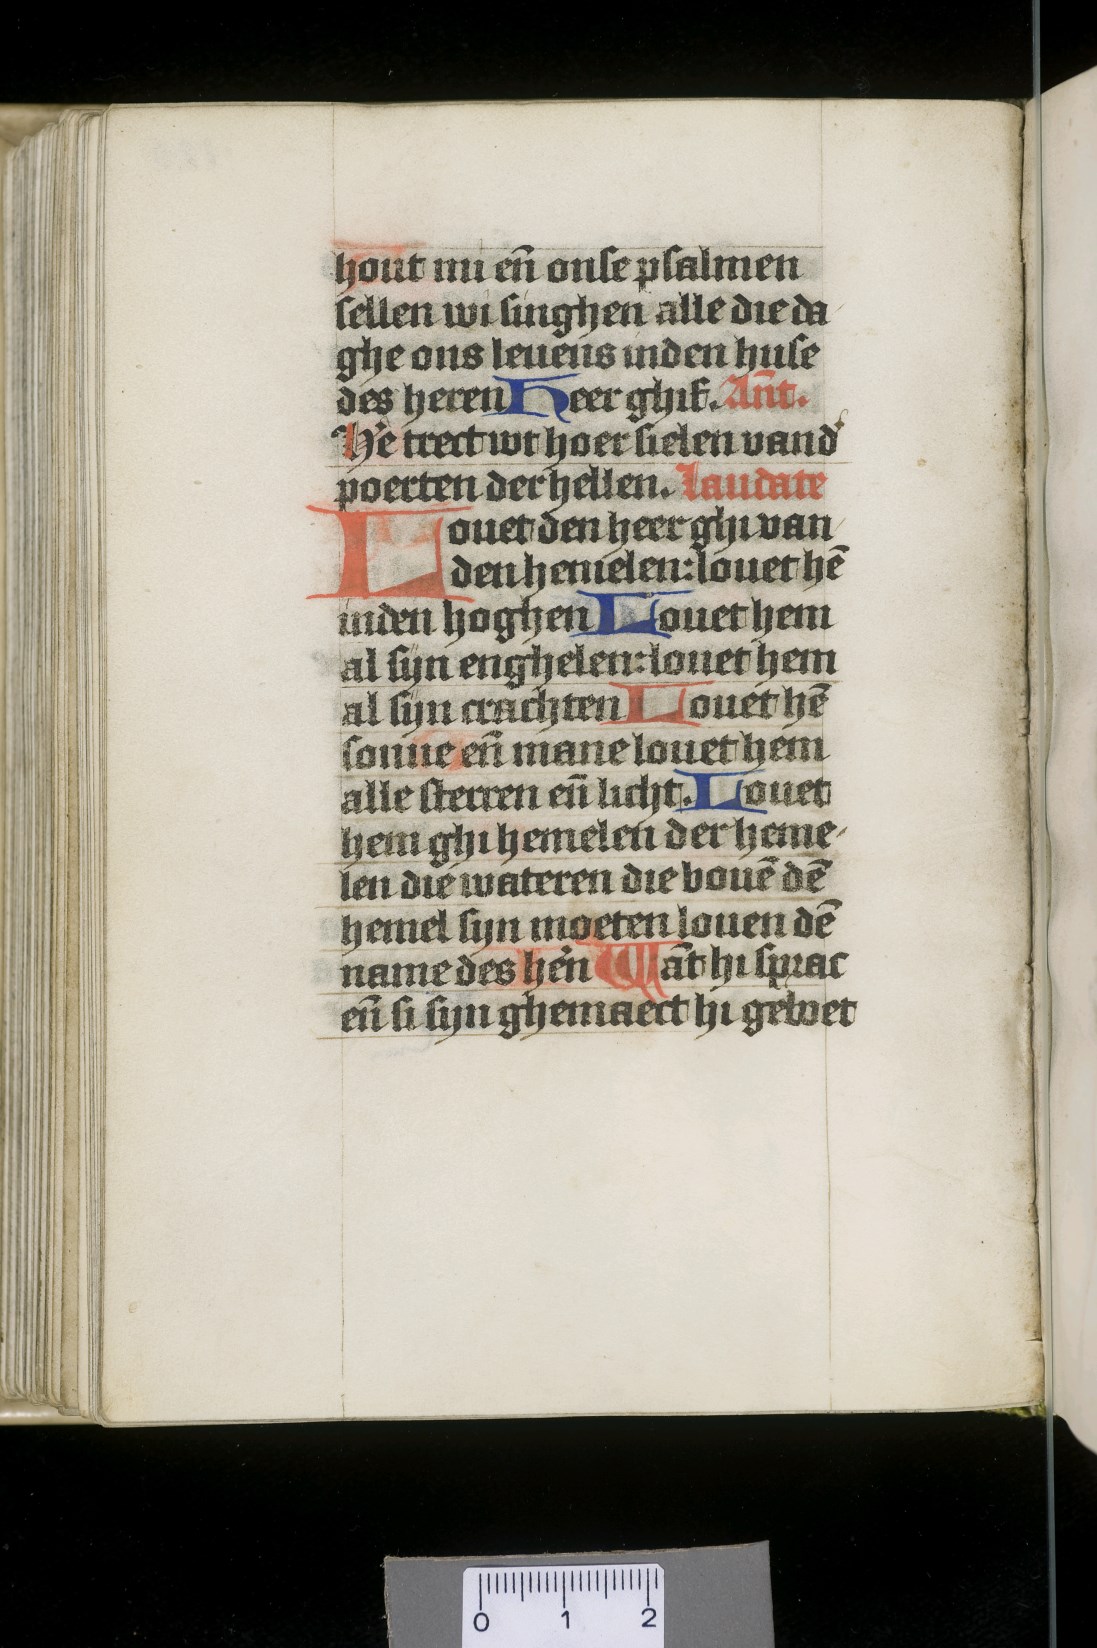 hout nu en̄ onse psalmen
sellen wi singhen alle die da
ghe ons leuens inden huse
des heren Heer ghif. An̄t.
He trect wt hoer sielen vand
poerten der hellen. Laudate
Louet den heer ghi van
den hemelen: louet hē
inden hoghen Louet hem
al syn enghelen: louet hem
al syn crachten Louet hē
sonne en̄ mane louet hem
alle sterren en̄ licht. Louet
hem ghi hemelen der heme
len die wateren die bouē dē
hemel syn moeten louen dē
name des hen Wāt hi sprac
en̄ si syn ghemaect hi geboet
0 1 2